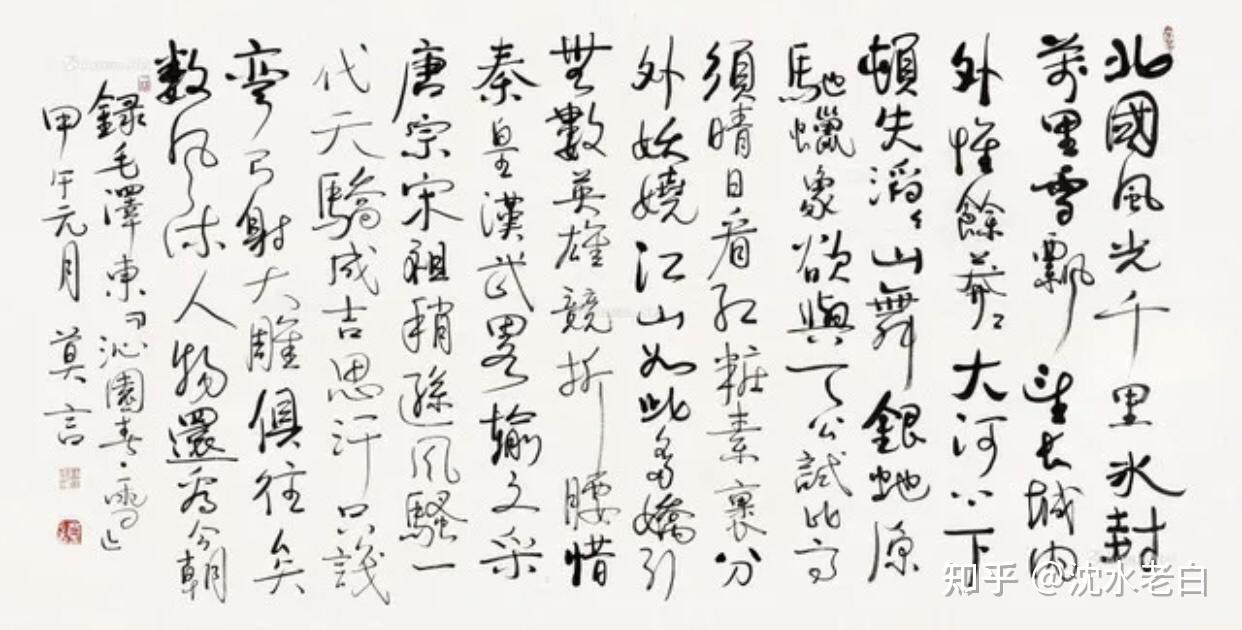 北國風光千里冰封
萬里雪飄望長城內
外惟餘莽々大河上下
頓失滔々山舞銀蛇原
馳蠟象欲與天公試比高
須晴日看紅粧素裹分
外妖嬈江山如此多嬌引
無數英雄競折腰惜
秦皇漢武畧輸文采
唐宗宋祖稍遜風騷一
代天驕成吉思汗只識
彎弓射大雕俱往矣
數風流人物還看今朝
錄毛澤東「沁園春·雪」
甲午元月 莫言
知乎 @沈水老白